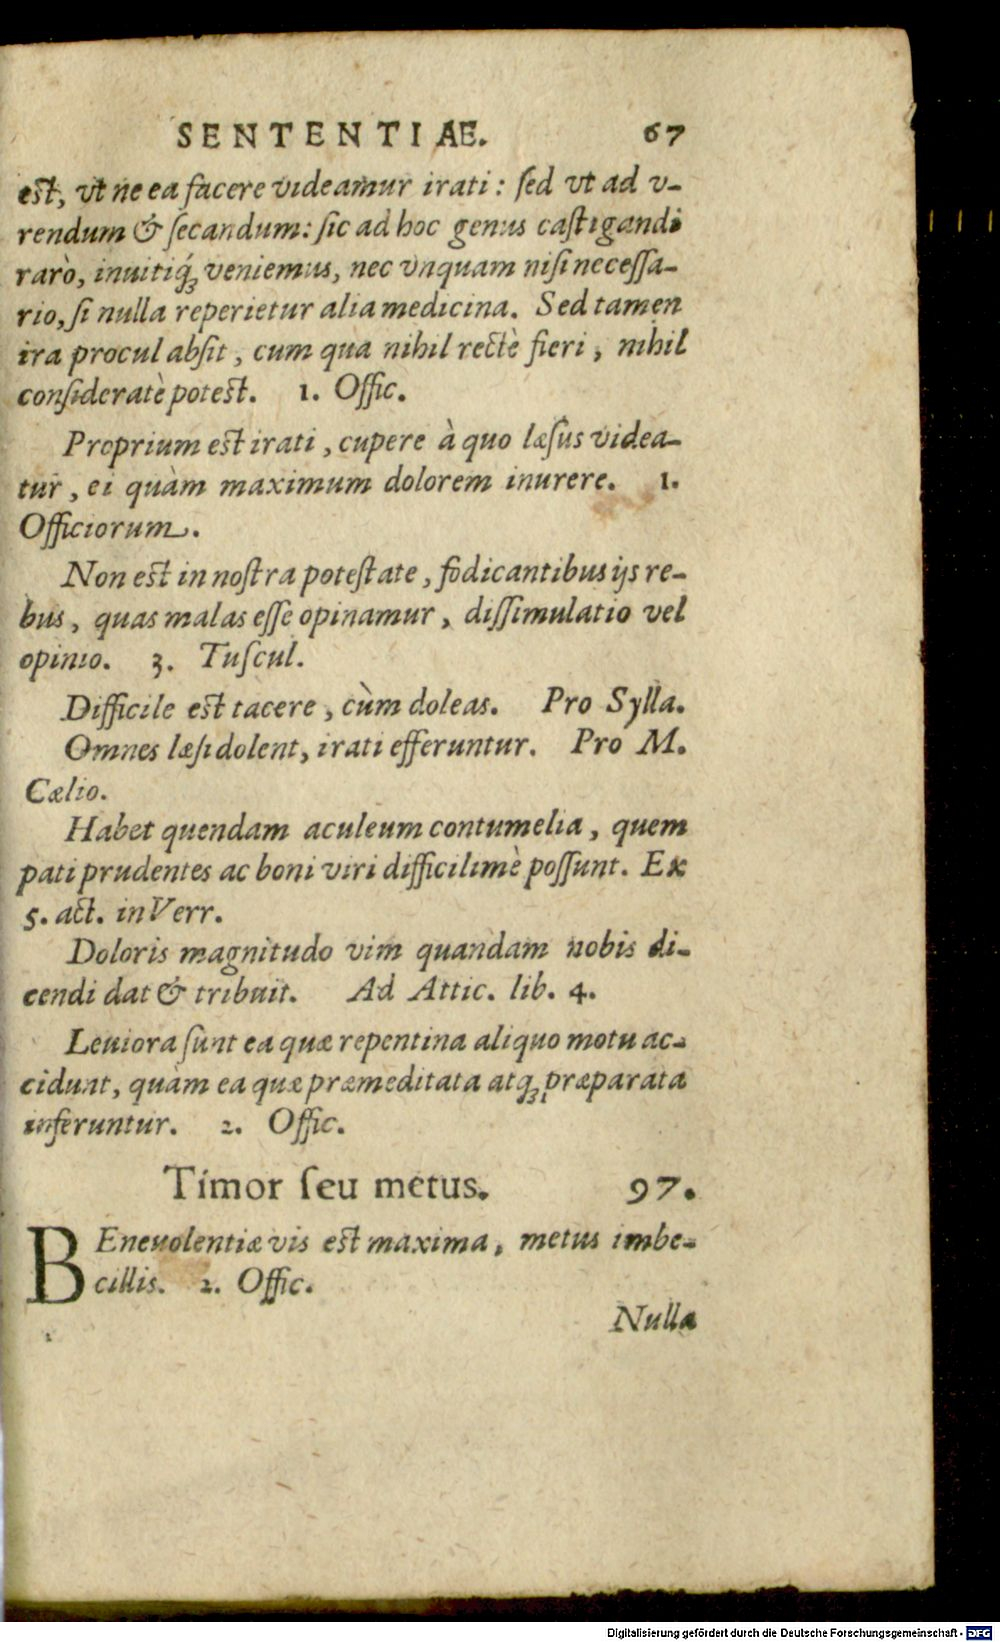 SENTENTIAE. 67
est, vt ne ea facere videamur irati: ſed vt ad v-
rendum & ſecandum: ſic ad hoc genus caſtigandi
rarò, inuitiq́ꝫ veniemus, nec vnquam niſi neceſſa-
rio, ſi nulla reperietur alia medicina. Sed tamen
ira procul abſit, cum qua nihil rectè fieri, nihil
conſideratè potest. 1. Offic.
Proprium est irati, cupere à quo læſus videa-
tur, ei quàm maximum dolorem inurere. 1.
Officiorum.
Non est in noſtra poteſtate, fodicantibus ijs re-
bus, quas malas eſſe opinamur, diſſimulatio vel
opinio. 3. Tuſcul.
Difficile est tacere, cùm doleas. Pro Sylla.
Omnes læſi dolent, irati efferuntur. Pro M.
Cælio.
Habet quendam aculeum contumelia, quem
pati prudentes ac boni viri difficilimè poſſunt. Ex
5. act. in Verr.
Doloris magnitudo vim quandam nobis di-
cendi dat & tribuit. Ad Attic. lib. 4.
Leuiora ſunt ea quæ repentina aliquo motu ac-
cidunt, quàm ea quæ præmeditata atqꝫ præparata
inferuntur. 2. Offic.
Timor ſeu metus. 97.
BEneuolentiæ vis est maxima, metus imbe-
cillis. 2. Offic.
Nulla
Digitalisierung gefördert durch die Deutsche Forschungsgemeinschaft - DFG